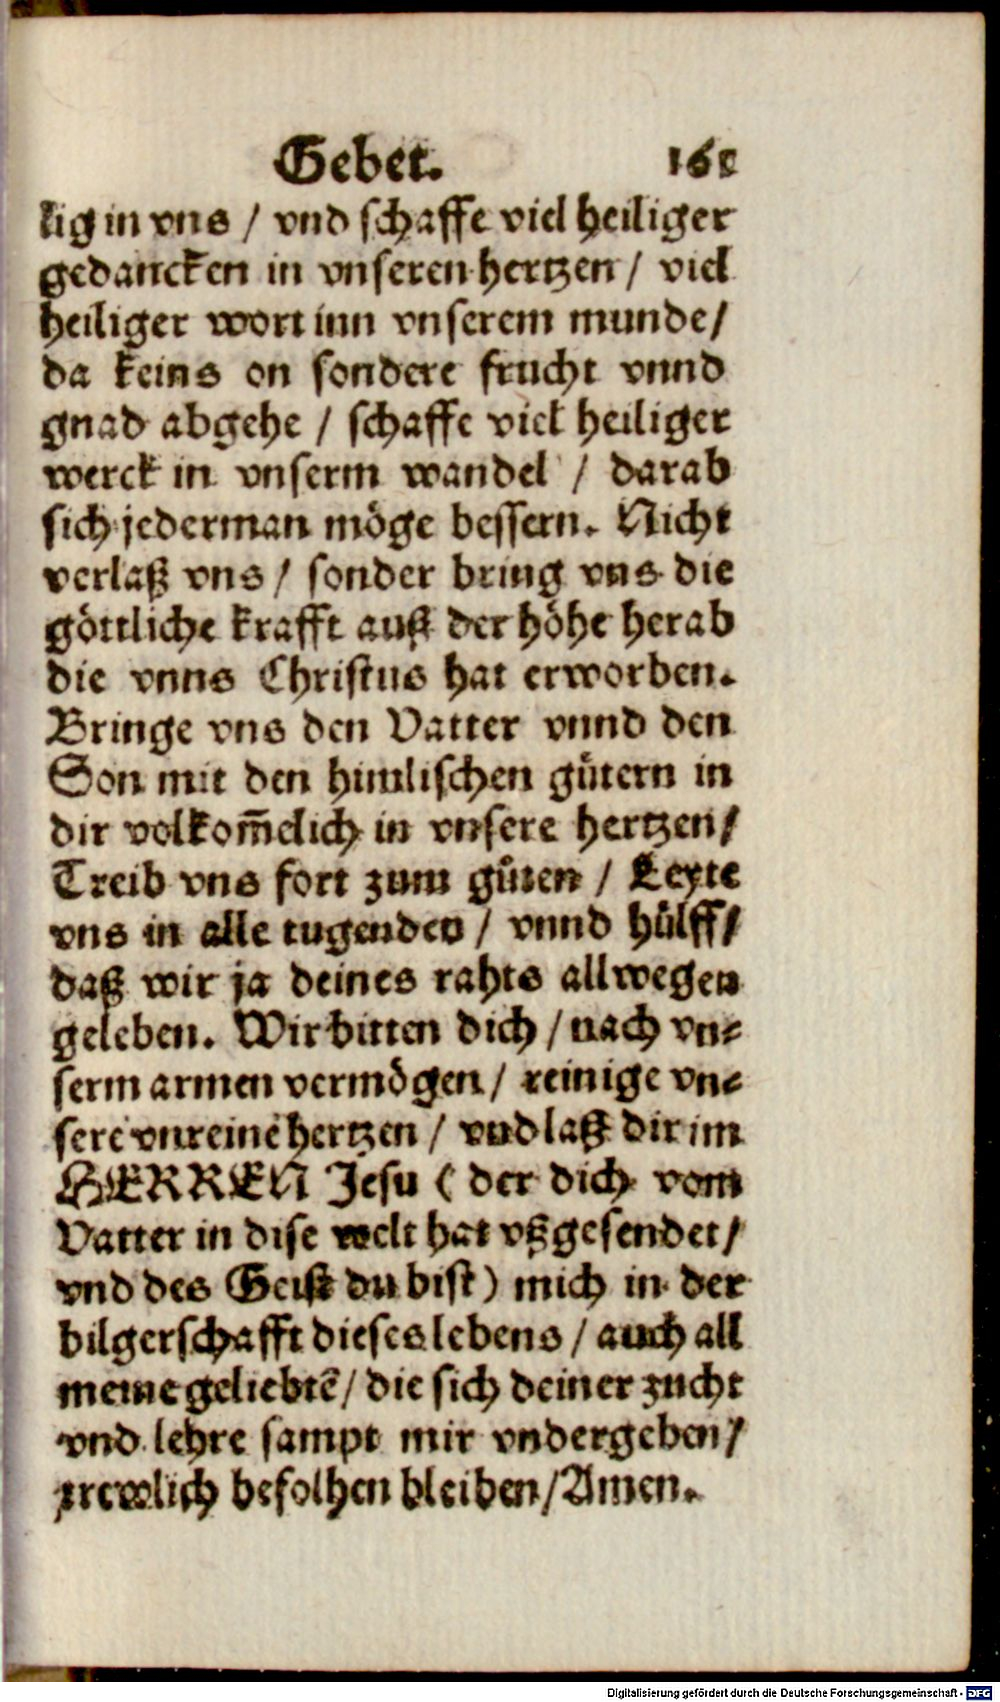 Gebet. 161
lig in vns / vnd schaffe viel heiliger
gedancken in vnseren hertzen / viel
heiliger wort inn vnserem munde /
da keins on sondere frucht vnnd
gnad abgehe / schaffe viel heiliger
werck in vnserm wandel / darab
sich jederman möge bessern. Nicht
verlaß vns / sonder bring vns die
göttliche krafft auß der höhe herab
die vnns Christus hat erworben.
Bringe vns den Vatter vnnd den
Son mit den himlischen gütern in
dir volkom̃elich in vnsere hertzen /
Treib vns fort zum gůten / Leyte
vns in alle tugenden / vnnd hülff /
daß wir ja deines rahts allwegen
geleben. Wir bitten dich / nach vn⸗
serm armen vermögen / reinige vn⸗
sere vnreine hertzen / vnd laß dir im
HERREN Jesu ( der dich vom
Vatter in dise welt hat vßgesendet /
vnd des Geist du bist ) mich in der
bilgerschafft dieses lebens / auch all
meine geliebtē / die sich deiner zucht
vnd lehre sampt mir vndergeben /
trewlich befolhen bleiben / Amen.
Digitalisierung gefördert durch die Deutsche Forschungsgemeinschaft - DFG